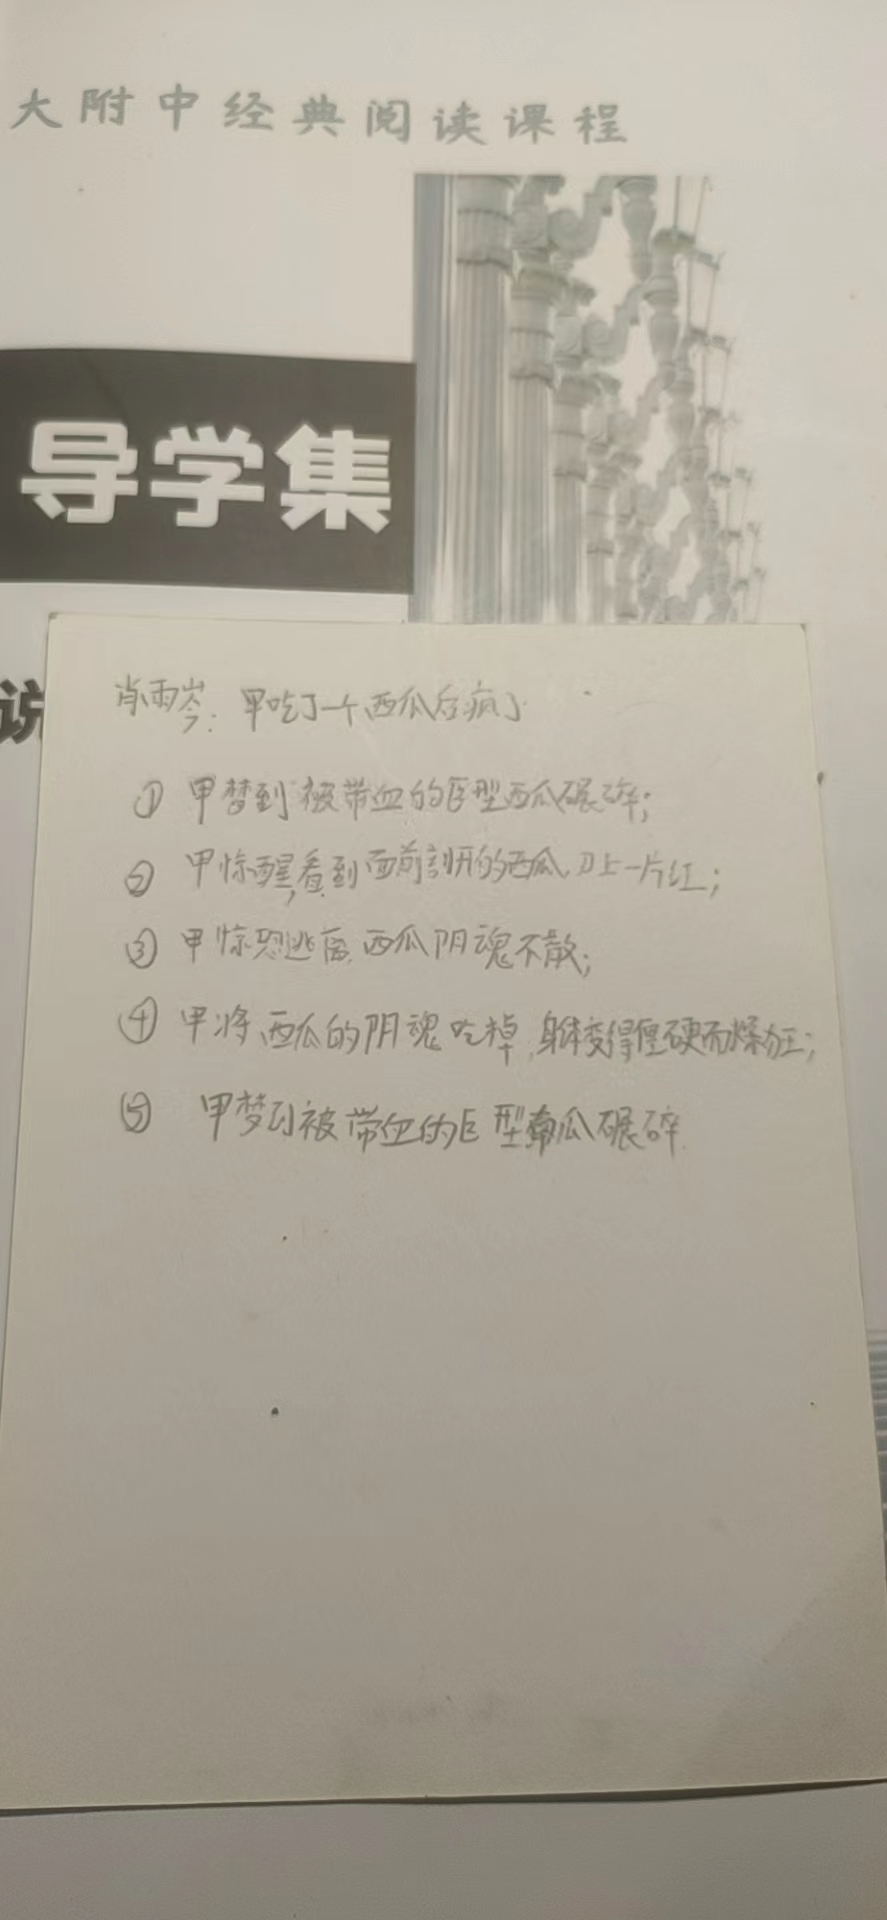 大附中经典阅读课程
导学集
说
肖雨岑：甲吃了一个西瓜后疯了
① 甲梦到被带血的巨型西瓜碾碎；
② 甲惊醒，看到面前剖开的西瓜，刀上一片红；
③ 甲惊恐逃离，西瓜阴魂不散；
④ 甲将西瓜的阴魂吃掉，身体变得僵硬而燥狂；
⑤ 甲梦到被带血的巨型南瓜碾碎.